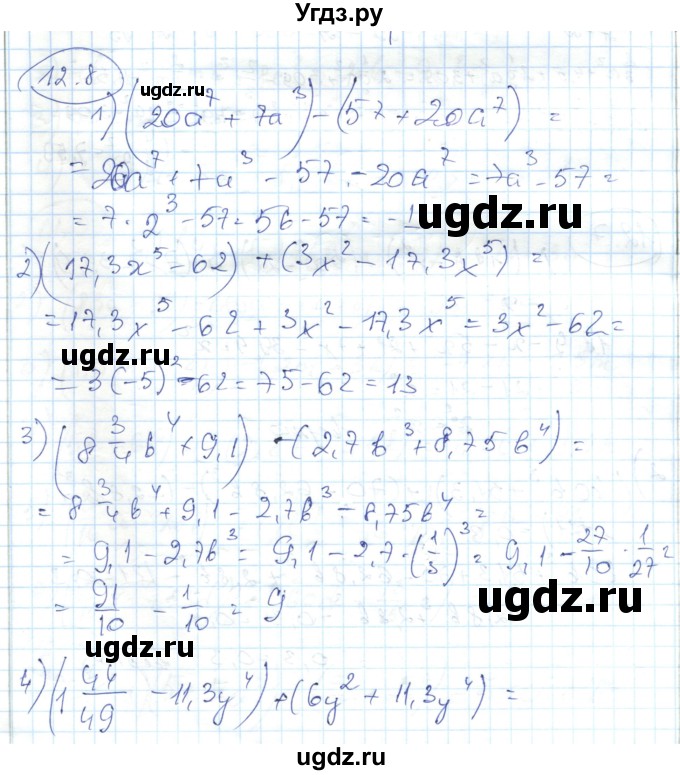 Угдз.ру
12.8
ugdz.ru
1) (20a⁷ + 7a³) - (57 + 20a⁷) =
ugdz.ru
= 20a⁷ + 7a³ - 57 - 20a⁷ = 7a³ - 57 =
= 7 · 2³ - 57 = 56 - 57 = -1
ugdz.ru
2) (17,3x⁵ - 62) + (3x² - 17,3x⁵) =
= 17,3x⁵ - 62 + 3x² - 17,3x⁵ = 3x² - 62 =
ugdz.ru
= 3(-5)² - 62 = 75 - 62 = 13
ugdz.ru
3) (8 3/4 b⁴ + 9,1) - (2,7b³ + 8,75b⁴) =
= 8 3/4 b⁴ + 9,1 - 2,7b³ - 8,75b⁴ =
= 9,1 - 2,7b³ = 9,1 - 2,7 · (1/3)³ = 9,1 - 27/10 · 1/27 =
ugdz.ru
= 91/10 - 1/10 = 9
ugdz.ru
4) (1 44/49 - 11,3y⁴) + (6y² + 11,3y⁴) =
ugdz.ru
ugdz.ru